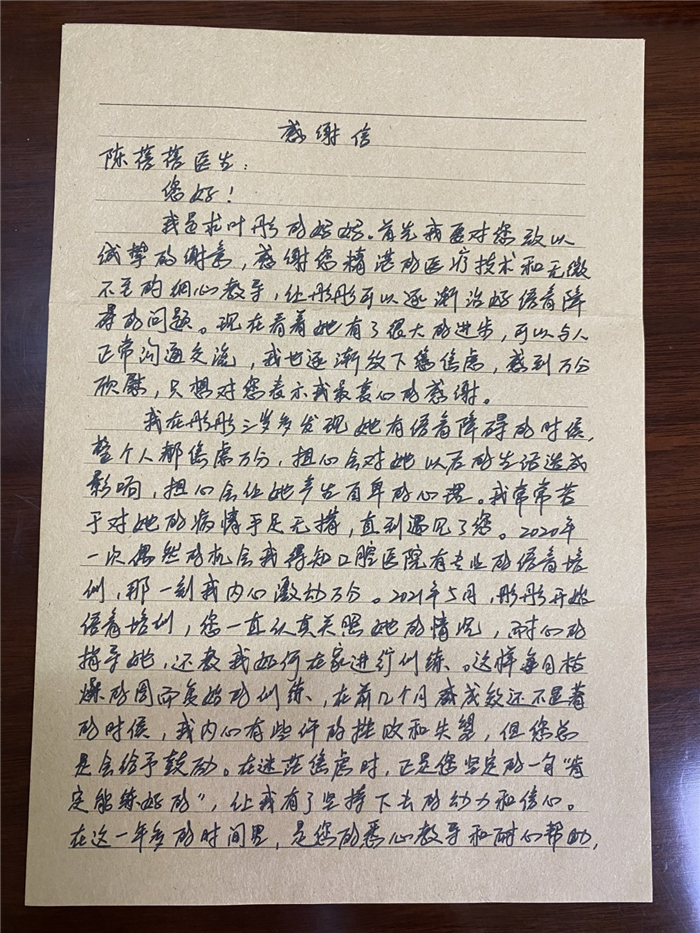 感谢信
陈蓓蓓医生：
您好！
我是求叶彤的妈妈。首先我要对您致以
诚挚的谢意，感谢您精湛的医疗技术和无微
不至的细心教导，让彤彤可以逐渐治好语音障
碍的问题。现在看着她有了很大的进步，可以与人
正常沟通交流，我也逐渐放下焦虑，感到万分
欣慰，只想对您表示我最衷心的感谢。
我在彤彤三岁多发现她有语音障碍的时候，
整个人都焦虑万分，担心会对她以后的生活造成
影响，担心会让她产生自卑的心理。我常常苦
于对她的病情手足无措，直到遇见了您。2020年
一次偶然的机会我得知口腔医院有专业的语音培
训，那一刻我内心激动万分。2021年5月，彤彤开始
语音培训，您一直认真关照她的情况，耐心的
指导她，还教我如何在家进行训练。这样每日枯
燥的周而复始的训练，在前几个月成效还不显著
的时候，我内心有些许的挫败和失望，但您总
是会给予鼓励。在迷茫焦虑时，正是您坚定的一句“肯
定能练好的”，让我有了坚持下去的动力和信心。
在这一年多的时间里，是您的悉心教导和耐心帮助，